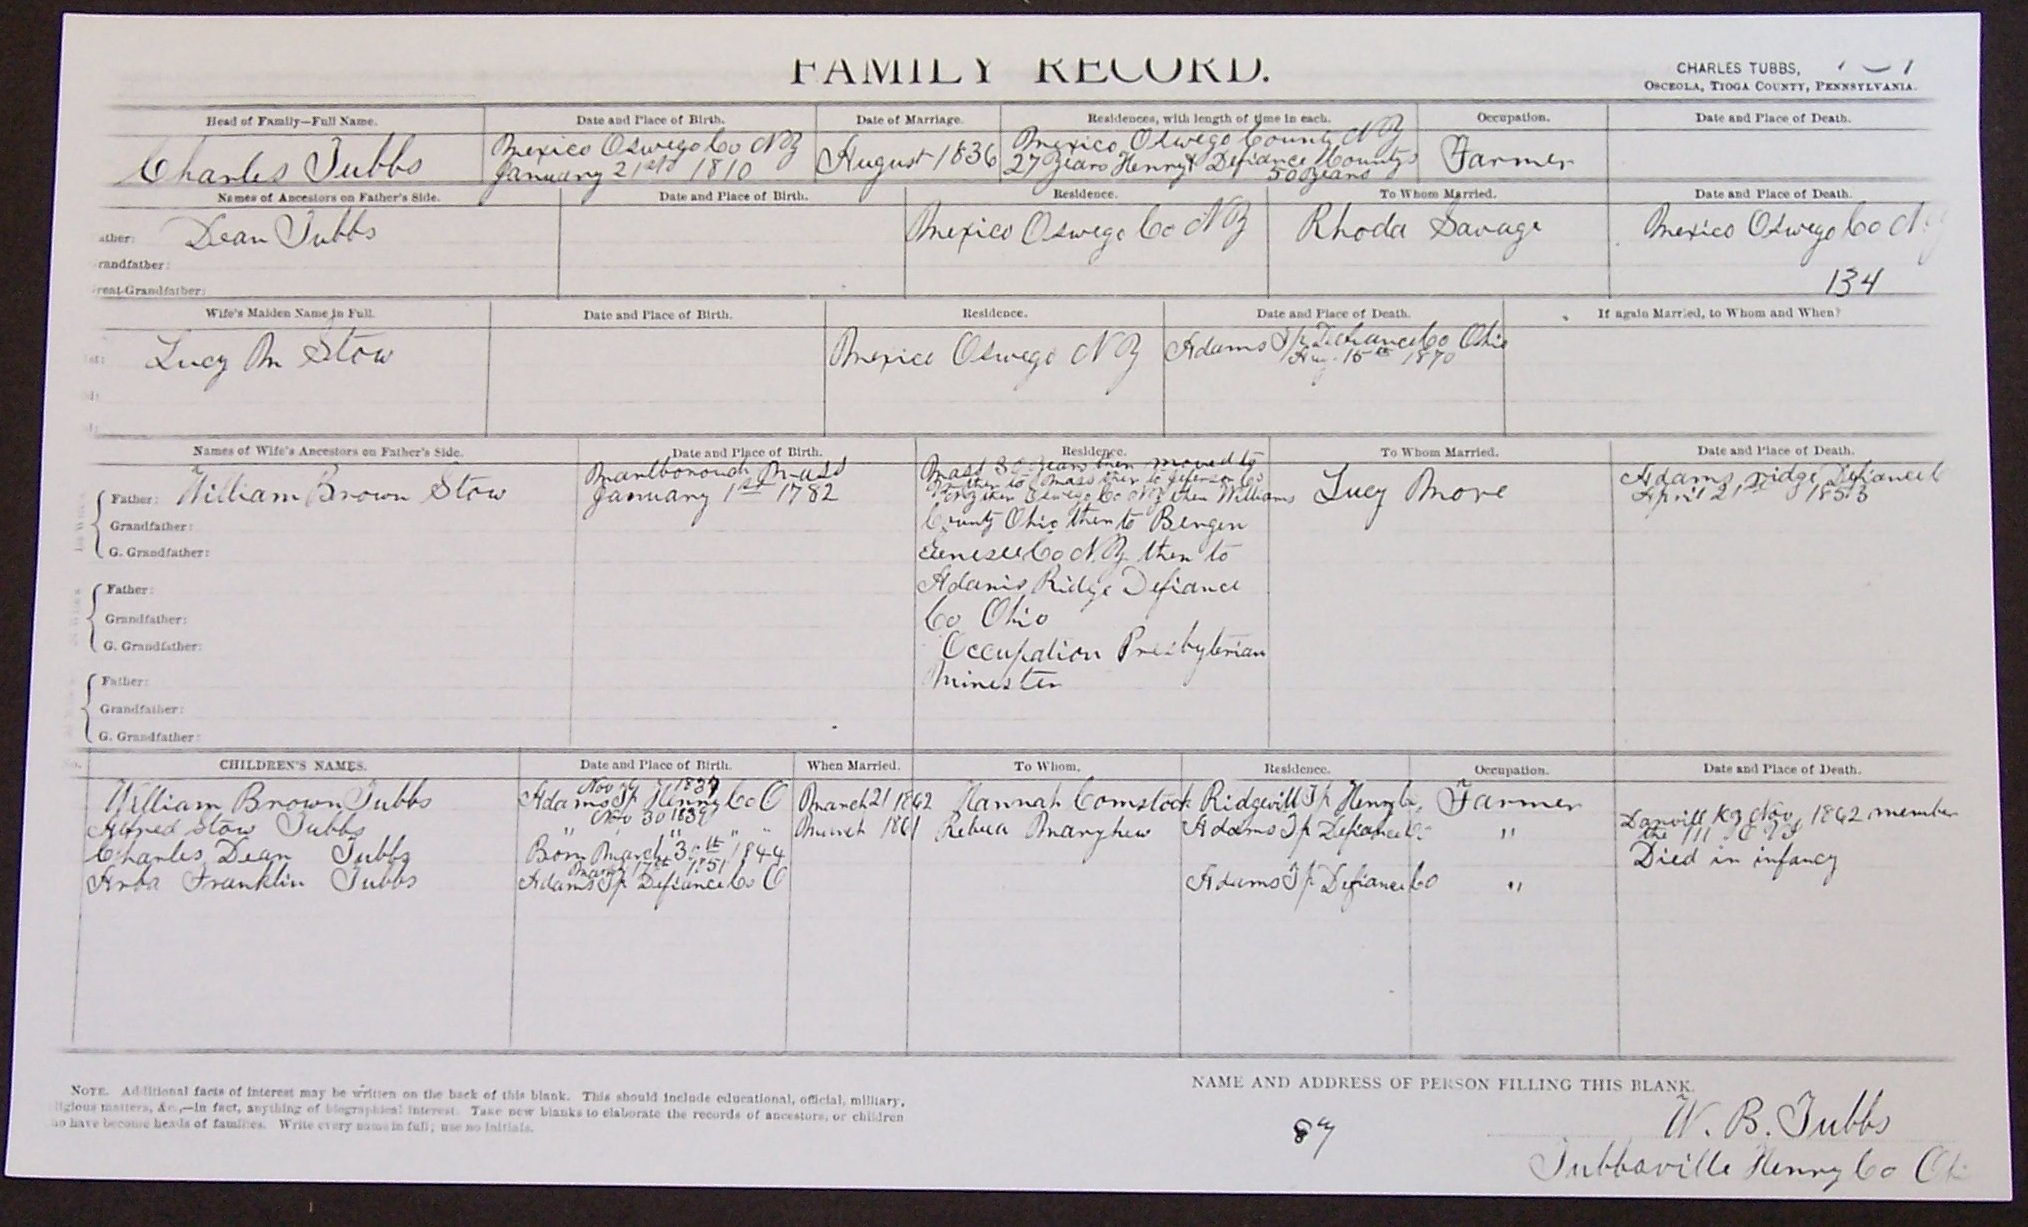 FAMILY RECORD.
CHARLES TUBBS,
OSCEOLA, TIOGA COUNTY, PENNSYLVANIA.
Head of Family—Full Name. Date and Place of Birth. Date of Marriage. Residences, with length of time in each. Occupation. Date and Place of Death.
Charles Tubbs Mexico Oswego Co NY August 1836 Mexico Oswego County NY Farmer
January 21st 1810 27 Years Henry & Defiance Countys
50 Years
Names of Ancestors on Father's Side. Date and Place of Birth. Residence. To Whom Married. Date and Place of Death.
ather: Dean Tubbs Mexico Oswego Co NY Rhoda Savage Mexico Oswego Co N.
randfather:
reat-Grandfather: 134
Wife's Maiden Name in Full. Date and Place of Birth. Residence. Date and Place of Death. If again Married, to Whom and When?
Lucy M Stow Mexico Oswego NY Adams Tp Defiance Co Ohio
Aug. 15th 1870
Names of Wife's Ancestors on Father's Side. Date and Place of Birth. Residence. To Whom Married. Date and Place of Death.
Father: William Brown Stow Marlborough Mass Mass 30 Years then moved to Lucy More Adams ridge Defiance C
January 1st 1782 then to Mass then to Jeferson Co April 21st 1853
NY then Oswego Co NY then Williams
Grandfather: County Ohio then to Bergen
G. Grandfather: Genesee Co NY then to
Father: Adams Ridge Defiance
Grandfather: Co Ohio
G. Grandfather: Occupation Presbyterian
Father: Minester
Grandfather:
G. Grandfather:
CHILDREN'S NAMES. Date and Place of Birth. When Married. To Whom. Residence. Occupation. Date and Place of Death.
Nov 1837
William Brown Tubbs Adams Tp Henry Co O March 21 1862 Hannah Comstock Ridgevill Tp Henry Co, Farmer
Nov 30 1839
Alfred Stow Tubbs " " " " March 1861 Rebeca Maryhew Adams Tp Defiance Co " Danvill Ky Nov, 1862 member
the 111 O V I
Charles Dean Tubbs Born March 30th 1844 Died in infancy
March 17th 1851
Arba Franklin Tubbs Adams Tp Defiance Co O Adams Tp Defiance Co "
NOTE. Additional facts of interest may be written on the back of this blank. This should include educational, official, military,
ligious matters, &c.,—in fact, anything of biographical interest. Take new blanks to elaborate the records of ancestors, or children
ho have become heads of families. Write every name in full; use no initials.
NAME AND ADDRESS OF PERSON FILLING THIS BLANK.
W. B. Tubbs
87
Tubbsville Henry Co Oh